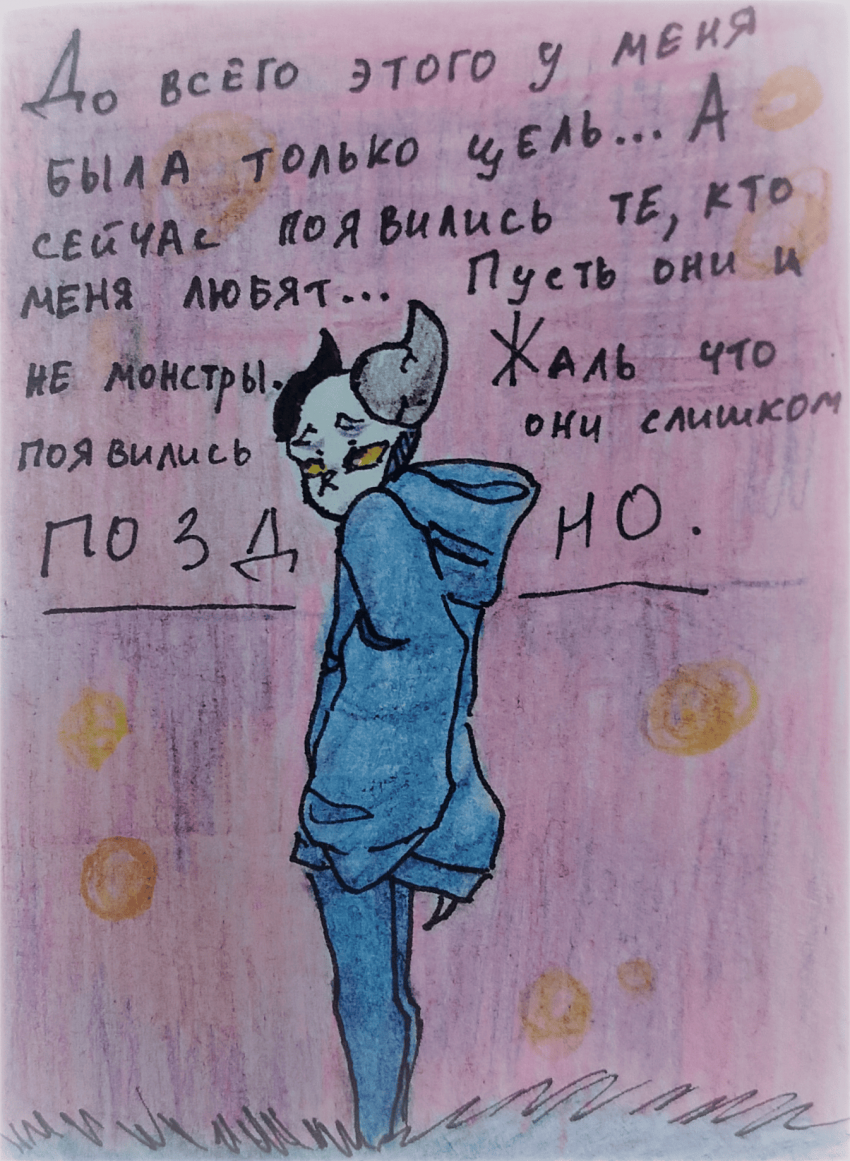 До всего этого у меня
была только цель... А
сейчас появились те, кто
меня любят... Пусть они и
не монстры. Жаль что
появились они слишком
ПОЗДНО.